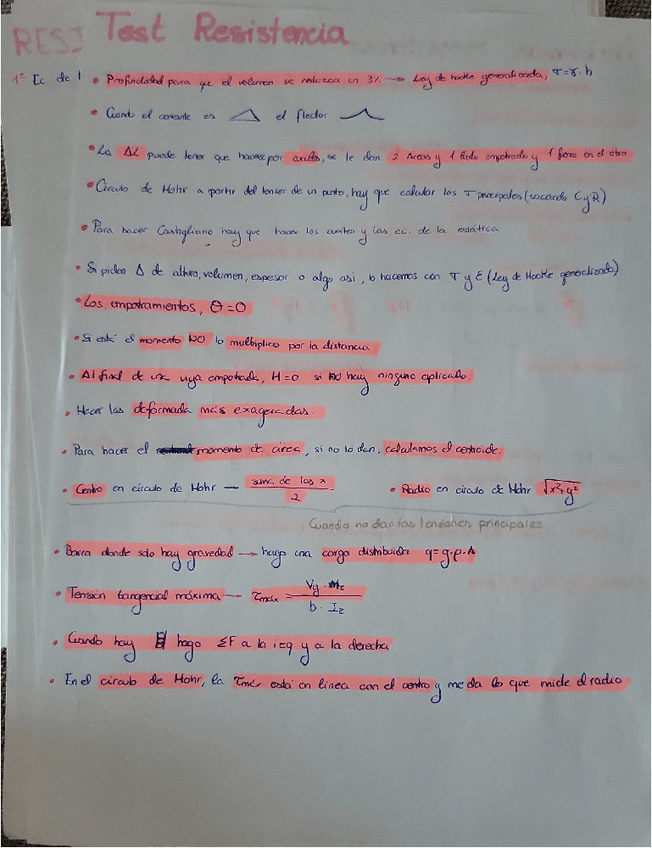 RESI Test Resistencia
1º Ec de l • Profundidad para que el volumen se reduzca en 3% → Ley de Hooke generalizada, σ=γ·h
• Cuando el cortante es el flector
• La ΔL puede tener que hacerse por axiles, se te dan 2 áreas y 1 lado empotrado y 1 fuerza en el otro
• Círculo de Mohr a partir del tensor de un punto, hay que calcular las σ principales (sacando C y R)
• Para hacer Castigliano hay que hacer los cortes y las ec. de la estática
• Si piden Δ de altura, volumen, espesor o algo así, lo hacemos con σ y ε (Ley de Hooke generalizada)
• Los empotramientos, θ=0
• Si está el momento NO lo multiplico por la distancia
• Al final de una viga empotrada, M=0 si no hay ninguno aplicado.
• Hacer las deformada más exageradas.
• Para hacer el momento de área, si no lo dan, calculamos el centroide.
• Centro en círculo de Mohr — suma de las x / 2 • Radio en círculo de Mohr √x²+y²
Cuando no dan las tensiones principales
• Barra donde solo hay gravedad → hago una carga distribuida q=g·ρ·A
• Tensión tangencial máxima → τmáx = Vy · mz / b · Iz
• Cuando hay hago ΣF a la izq y a la derecha
• En el círculo de Mohr, la τmáx está en línea con el centro y me da lo que mide el radio